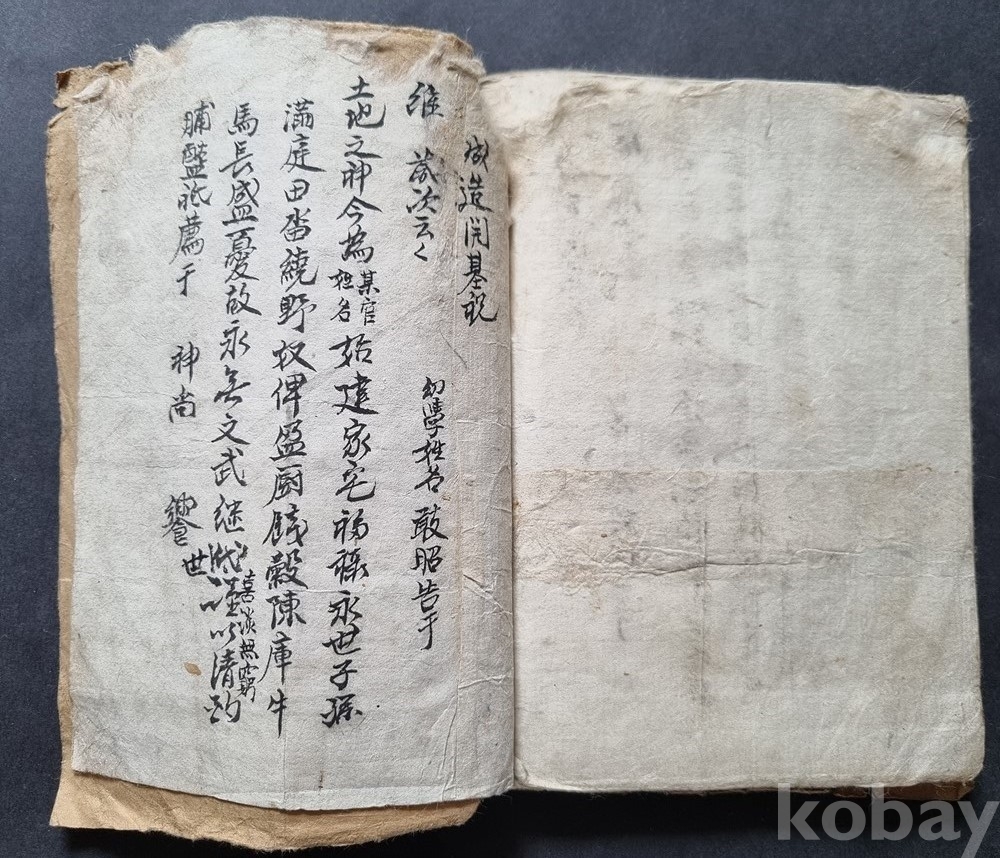 成造開基祝
維 歲次云々 幼學姓名 敢昭告于
土地之神今為某官姓名始建家宅福祿永世子孫
滿庭田畓繞野奴俾盈厨錢穀陳庫牛
馬長盛憂故永無文武継世喜無窮謹以清酌
脯醢祗薦于 神尚 饗
kobay